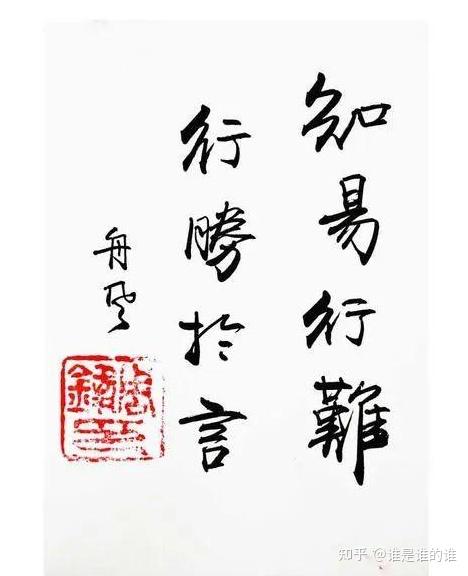 知易行難
行勝於言
舟風
知乎 @谁是谁的谁